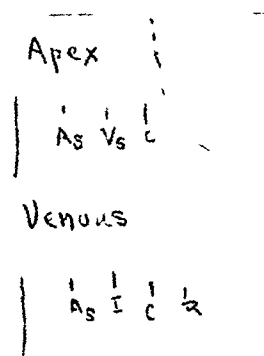 Apex
As Vs c
Venous
As I c